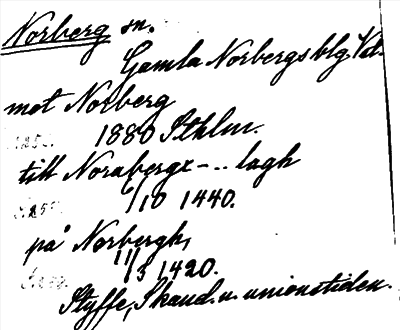 Norberg sn.
Gamla Norbergs blg. Vd.
mot Norberg
1880 Sthlm.
till Norabergx - .. lagh
1/10 1440.
på Norbergh,
11/3 1420.
Styffe, Skand. u. unionstiden.